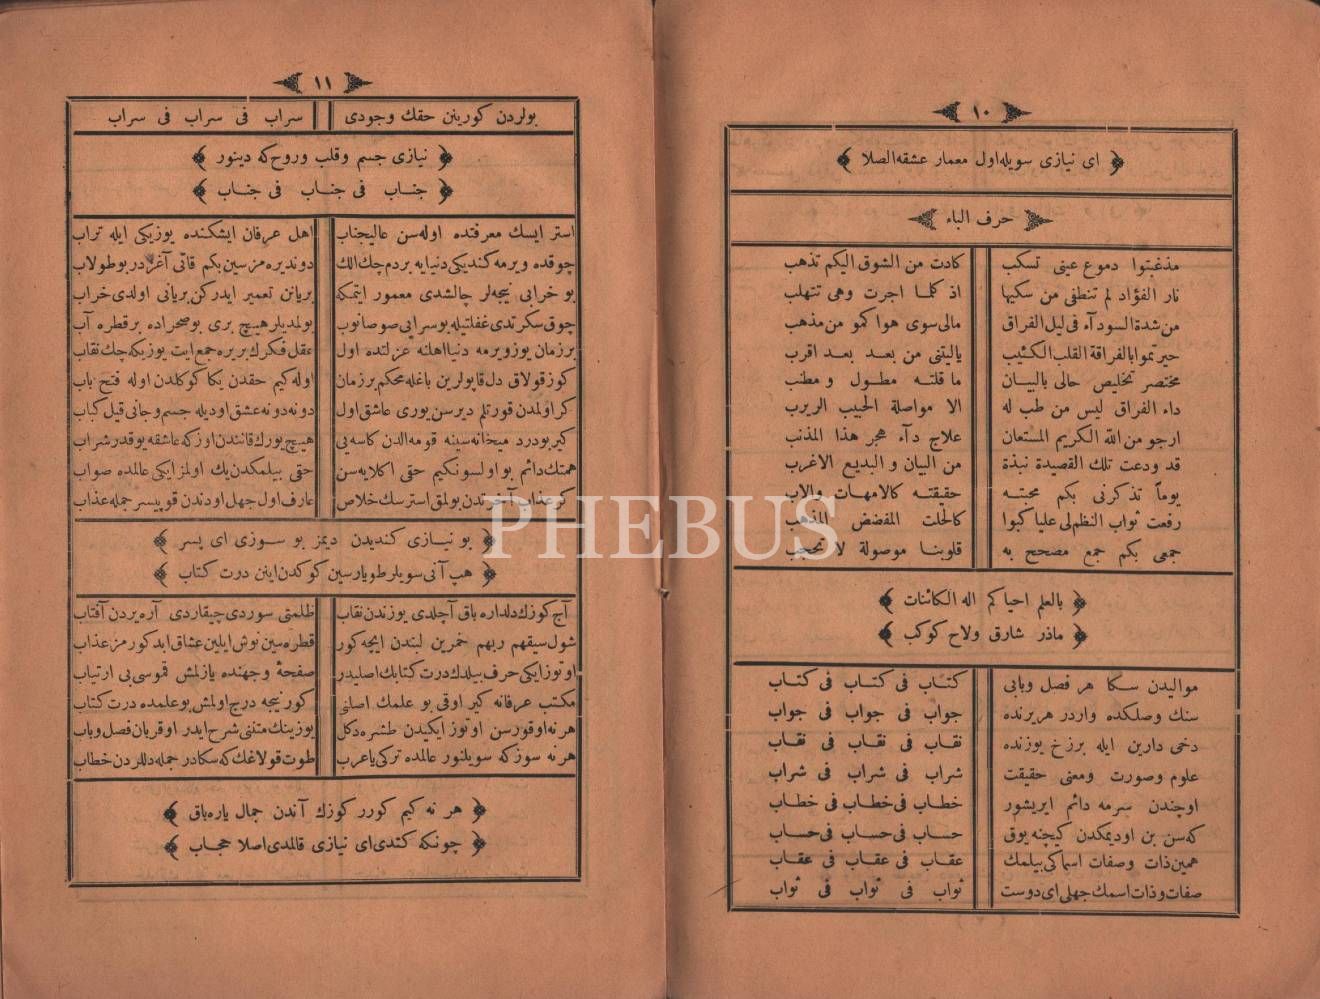 ١٠
ای نیازی سویله اول معمار عشقه الصلا
حرف الباء
مذغبتوا دموع عینی تسکب کادت من الشوق الیکم تذهب
نار الفؤاد لم تنطفی من سکبها اذ کلما اجرت وهی تتهلب
من شدة السودآء فی لیل الفراق مالی سوی هواکمو من مذهب
حیرتموا بالفراقة القلب الکئیب یالیتنی من بعد بعد اقرب
مختصر تخلیص حالی بالبیان ما قلته مطول و مطنب
داء الفراق لیس من طب له الا مواصلة الحبیب الربرب
ارجو من الله الکریم المستعان علاج دآء هجر هذا المذنب
قد ودعت تلك القصیدة نبذة من البیان و البدیع الاغرب
یوماً تذکرنی بکم محبته حقیقته کالامهات والاب
رفعت ثواب النظم لی علیا کبوا کالحلت المفضض المذهب
جمعی بکم جمع مصحح به قلوبنا موصولة لا تحجب
بالعلم احیاکم اله الکائنات
ماذر شارق ولاح کوکب
موالیدن سکا هر فصل وبابی کتاب فی کتاب فی کتاب
سنك وصلکده واردر هر برنده جواب فی جواب فی جواب
دخی دارین ایله برزخ یوزنده نقاب فی نقاب فی نقاب
علوم وصورت ومعنی حقیقت شراب فی شراب فی شراب
اوچندن سرمه دائم ایریشور خطاب فی خطاب فی خطاب
که سن بن اودیمکدن کیچنه یوق حساب فی حساب فی حساب
همین ذات وصفات اسماکی بیلمك عقاب فی عقاب فی عقاب
صفات وذات اسمك جهلی ای دوست ثواب فی ثواب فی ثواب
١١
بولردن کورینن حقك وجودی سراب فی سراب فی سراب
نیازی جسم وقلب وروح که دینور
جناب فی جناب فی جناب
استر ایسك معرفتده اوله سن عالیجناب اهل عرفان ایشکنده یوزیکی ایله تراب
چوقده ویرمه کندیکی دنیایه بردم چك الك دوندیره مز سین بکم قاتی آغردر بو طولاب
بو خرابی نیجه لر چالشدی معمور ایتمکه بریانن تعمیر ایدرکن بریانی اولدی خراب
چوق سکرتدی غفلتیله بو سرابی صو صانوب بولمدیلر هیچ بری بو صحراده بر قطره آب
بر زمان یوز ویرمه دنیا اهلنه عزلتده اول عقل فکرك بریره جمع ایت یوزیکه چك نقاب
کوز قولاق دل قاپولرین باغله محکم بر زمان اوله کیم حقدن یکا کوکلدن اوله فتح باب
کر اولمدن قورتلم دیرسن یوری عاشق اول دونه دونه عشق اودیله جسم وجانی قیل کباب
کیر بودرد میخانه سینه قومه الدن کاسه یی هیچ یورك قانندن اوزکه عاشقه یوقدر شراب
همتك دائم بو اولسونکیم حقی اکلایه سن حقی بیلمکدن یك اولمز ایکی عالمده صواب
کر عذاب آخرتدن بولمق استرسك خلاص عارف اول جهل اودندن قوپیسر جمله عذاب
بو نیازی کندیدن دیمز بو سوزی ای پسر
هپ آنی سویلر طویارسین کوکدن اینن درت کتاب
آچ کوزك دلداره باق آچلدی یوزندن نقاب ظلمتی سوردی چیقاردی آره یردن آفتاب
شول سیقهم ربهم خمرین لبندن ایچه کور قطره سین نوش ایلین عشاق ابد کورمز عذاب
اوتوز ایکی حرف بیلدك درت کتابك اصلیدر صفحهٔ وجهنده یازلمش قموسی بی ارتیاب
مکتب عرفانه کیر اوقی بو علمك اصلنی کور نیجه درج اولمش بو علمده درت کتاب
هر نه اوقورسن اوتوز ایکیدن طشره دکل یوزینك متننی شرح ایدر اوقریان فصل وباب
هر نه سوز که سویلنور عالمده ترکی یا عرب طوت قولاغك که سکادر جمله دللردن خطاب
هر نه کیم کورر کوزك آندن جمال یاره باق
چونکه کتدی ای نیازی قالمدی اصلا حجاب
PHEBUS